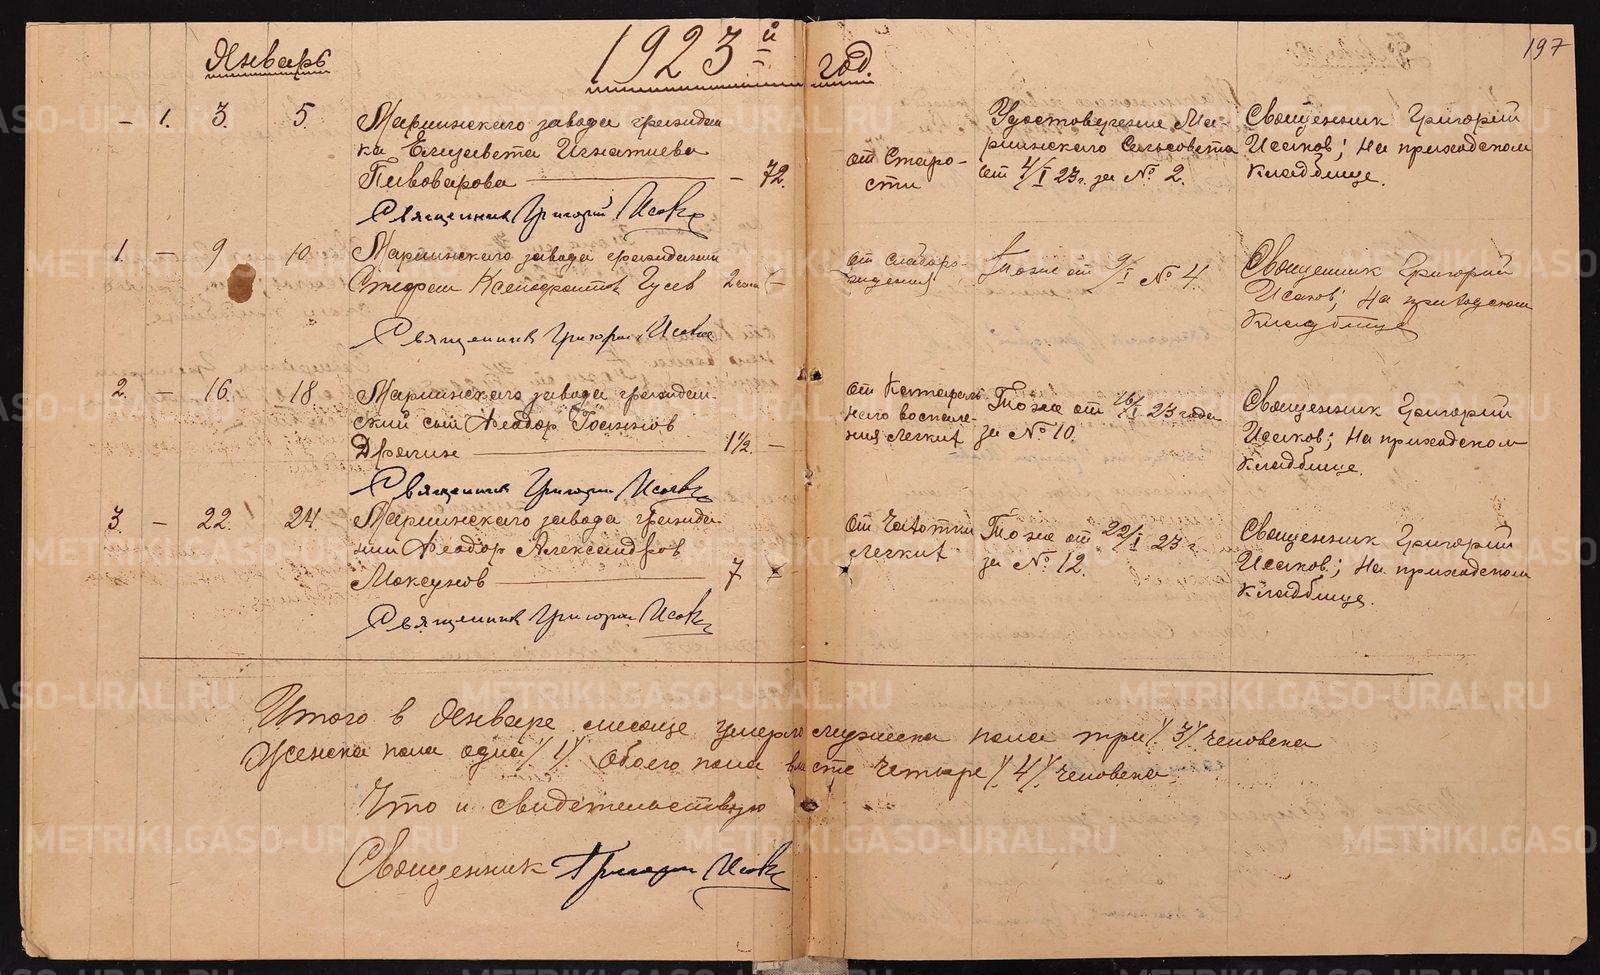 197
Январь 1923й год.
– 1. 3. 5. Мариинскаго завода граждан
ка Елизавета Игнатиева
Пивоварова — – 72.
от Старо-
сти
Удостоверение Ма-
риинскаго Сельсовета
от 4/I 23 г. за № 2.
Священник Григорий
Исаков; На приходском
кладбище.
Священник Григорий Исаков
1. – 9 10. Мариинскаго завода гражданин
Стефан Гусев 2 –
от слаборо-
ждения
Тоже от 9/I № 4.
Священник Григорий
Исаков; На приходском
кладбище
Священник Григорий Исаков
2 – 16. 18 Мариинскаго завода граждан
ский сын Феодор Иоаннов
1½. –
от Катараль
наго воспале-
ния легких
Тоже от 16/I 23 года
за № 10.
Священник Григорий
Исаков; На приходском
кладбище.
Священник Григорий Исаков
3. – 22. 24. Мариинскаго завода гражда
нин Феодор Александров
Мокеунов — 7
от Чахотки
легких
Тоже от 22/I 23 г.
за № 12.
Священник Григорий
Исаков; На приходском
кладбище.
Священник Григорий Исаков
Итого в Январе месяце умерло мужеска пола три /3/ человека
Женска пола одна /1/. Обоего пола вместе четыре /4/ человека.
Что и свидетельствую
Священник Григорий Исаков
METRIKI.GASO-URAL.RU